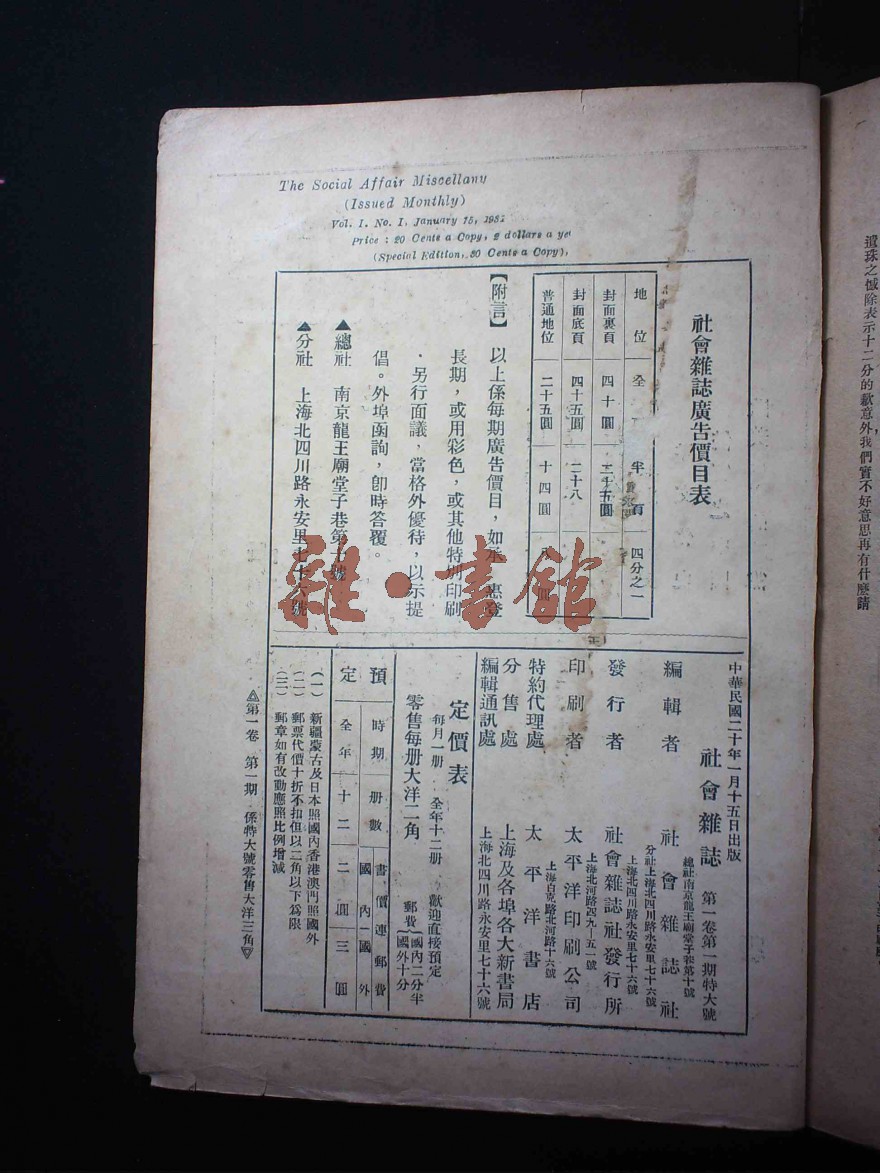 The Social Affair Miscellany
(Issued Monthly)
Vol. I. No. I, January 15, 1931
Price : 20 Cents a Copy, 2 dollars a
(Special Edition, 30 Cents a Copy),
社會雜誌廣告價目表
地位 全 半頁 四分之一
封面裏頁 四十圓 二十五圓
封面底頁 四十五圓 二十八
普通地位 二十五圓 十四圓
【附言】 以上係每期廣告價目，如承 惠登
長期，或用彩色，或其他特別印刷
，另行面議，當格外優待，以示提
倡。外埠函詢，卽時答覆。
▲總社 南京龍王廟堂子巷第十號
▲分社 上海北四川路永安里七十六號
雜·書館
中華民國二十年一月十五日出版
社會雜誌 第一卷第一期特大號
編輯者 社會雜誌社
總社南京龍王廟堂子巷第十號
分社上海北四川路永安里七十六號
發行者 社會雜誌社發行所
上海北四川路永安里七十六號
印刷者 太平洋印刷公司
上海北河路四九—五一號
特約代理處 太平洋書店
上海白克路北河路十六號
分售處 上海及各埠各大新書局
編輯通訊處 上海北四川路永安里七十六號
定價表
每月一册 全年十二册 歡迎直接預定
零售每册大洋二角 郵費 國內二分半 國外十分
預定
時期 册數 書價連郵費
國內 國外
全年 十二 二圓 三圓
(一) 新疆蒙古及日本照國內香港澳門照國外
(二) 郵票代價十折不扣但以二角以下爲限
(三) 郵章如有改動應照比例增減
第一卷 第一期 係特大號零售大洋三角
遺珠之憾除表示十二分的歉意外，我們實不好意思再有什麽請